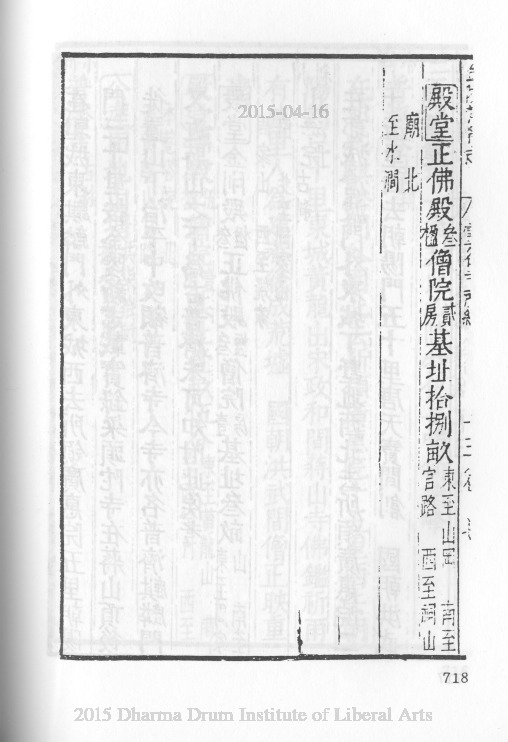 2015-04-16
殿堂正佛殿叁楹僧院貳房基址拾捌畝東至山岡 南至官路 西至祠山
廟 北至水澗
718
2015 Dharma Drum Institute of Liberal Arts